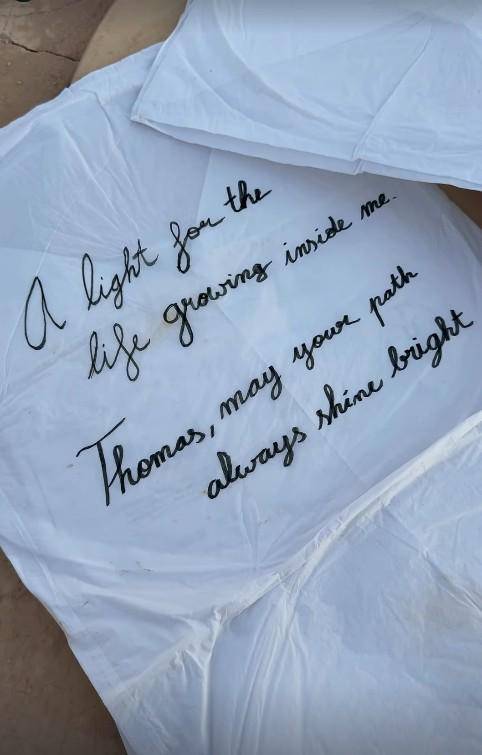 A light for the
life growing inside me.
Thomas, may your path
always shine bright